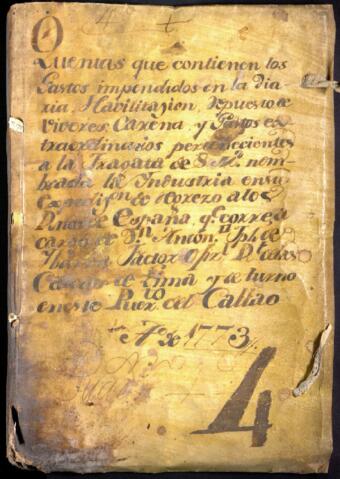 4 +
Quentas que contienen los
Gastos impendidos en la dia
ria, Havilitasion, repuesto de
Viveres, Carena, y Gastos ex
traordinarios pertenecientes
a la Fragata de S. M. nom-
brada la Industria en su
Expedisn. de
de España qe. corre a
cargo de Dn. Antonº. Jph. de
Factor Ofizl. Rl. de las
Caxas de Lima y de turno
en este Puerto. del Callao
Aº. de 1773
4